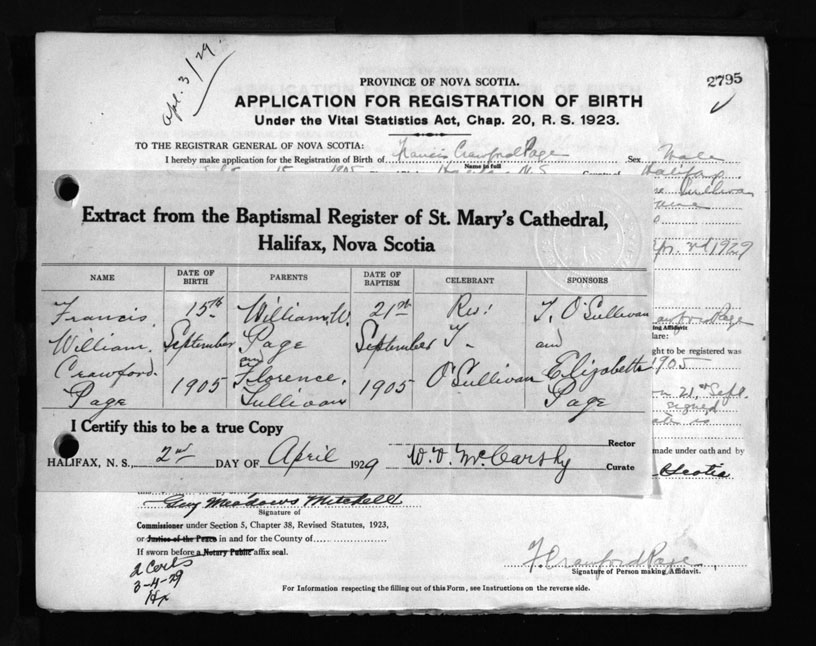 Apl. 3/29
2795
PROVINCE OF NOVA SCOTIA.
APPLICATION FOR REGISTRATION OF BIRTH
Under the Vital Statistics Act, Chap. 20, R. S. 1923.
TO THE REGISTRAR GENERAL OF NOVA SCOTIA:
I hereby make application for the Registration of Birth of Francis Crawford Page Sex Male
Name in full
Halifax
Sullivan
Apr. 2nd 1929
Extract from the Baptismal Register of St. Mary's Cathedral,
Halifax, Nova Scotia
NAME DATE OF BIRTH PARENTS DATE OF BAPTISM CELEBRANT SPONSORS
Francis 15th William W. 21st Rev. T. O'Sullivan
William September Page September T. and
Crawford and Elizabeth
Page 1905 Florence Sullivan 1905 O'Sullivan Page
ing Affidavit
lare:
ght to be registered was
1905
21st Sept.
signed
I Certify this to be a true Copy
Rector
HALIFAX, N. S., 2nd DAY OF April 1929 W. V. McCarthy Curate
made under oath and by
Scotia
Mitchell
Signature of
Commissioner under Section 5, Chapter 38, Revised Statutes, 1923,
or Justice of the Peace in and for the County of
If sworn before a Notary Public affix seal.
2 Certs
3-4-29
Hx
F. Crawford Page
Signature of Person making Affidavit.
For Information respecting the filling out of this Form, see Instructions on the reverse side.